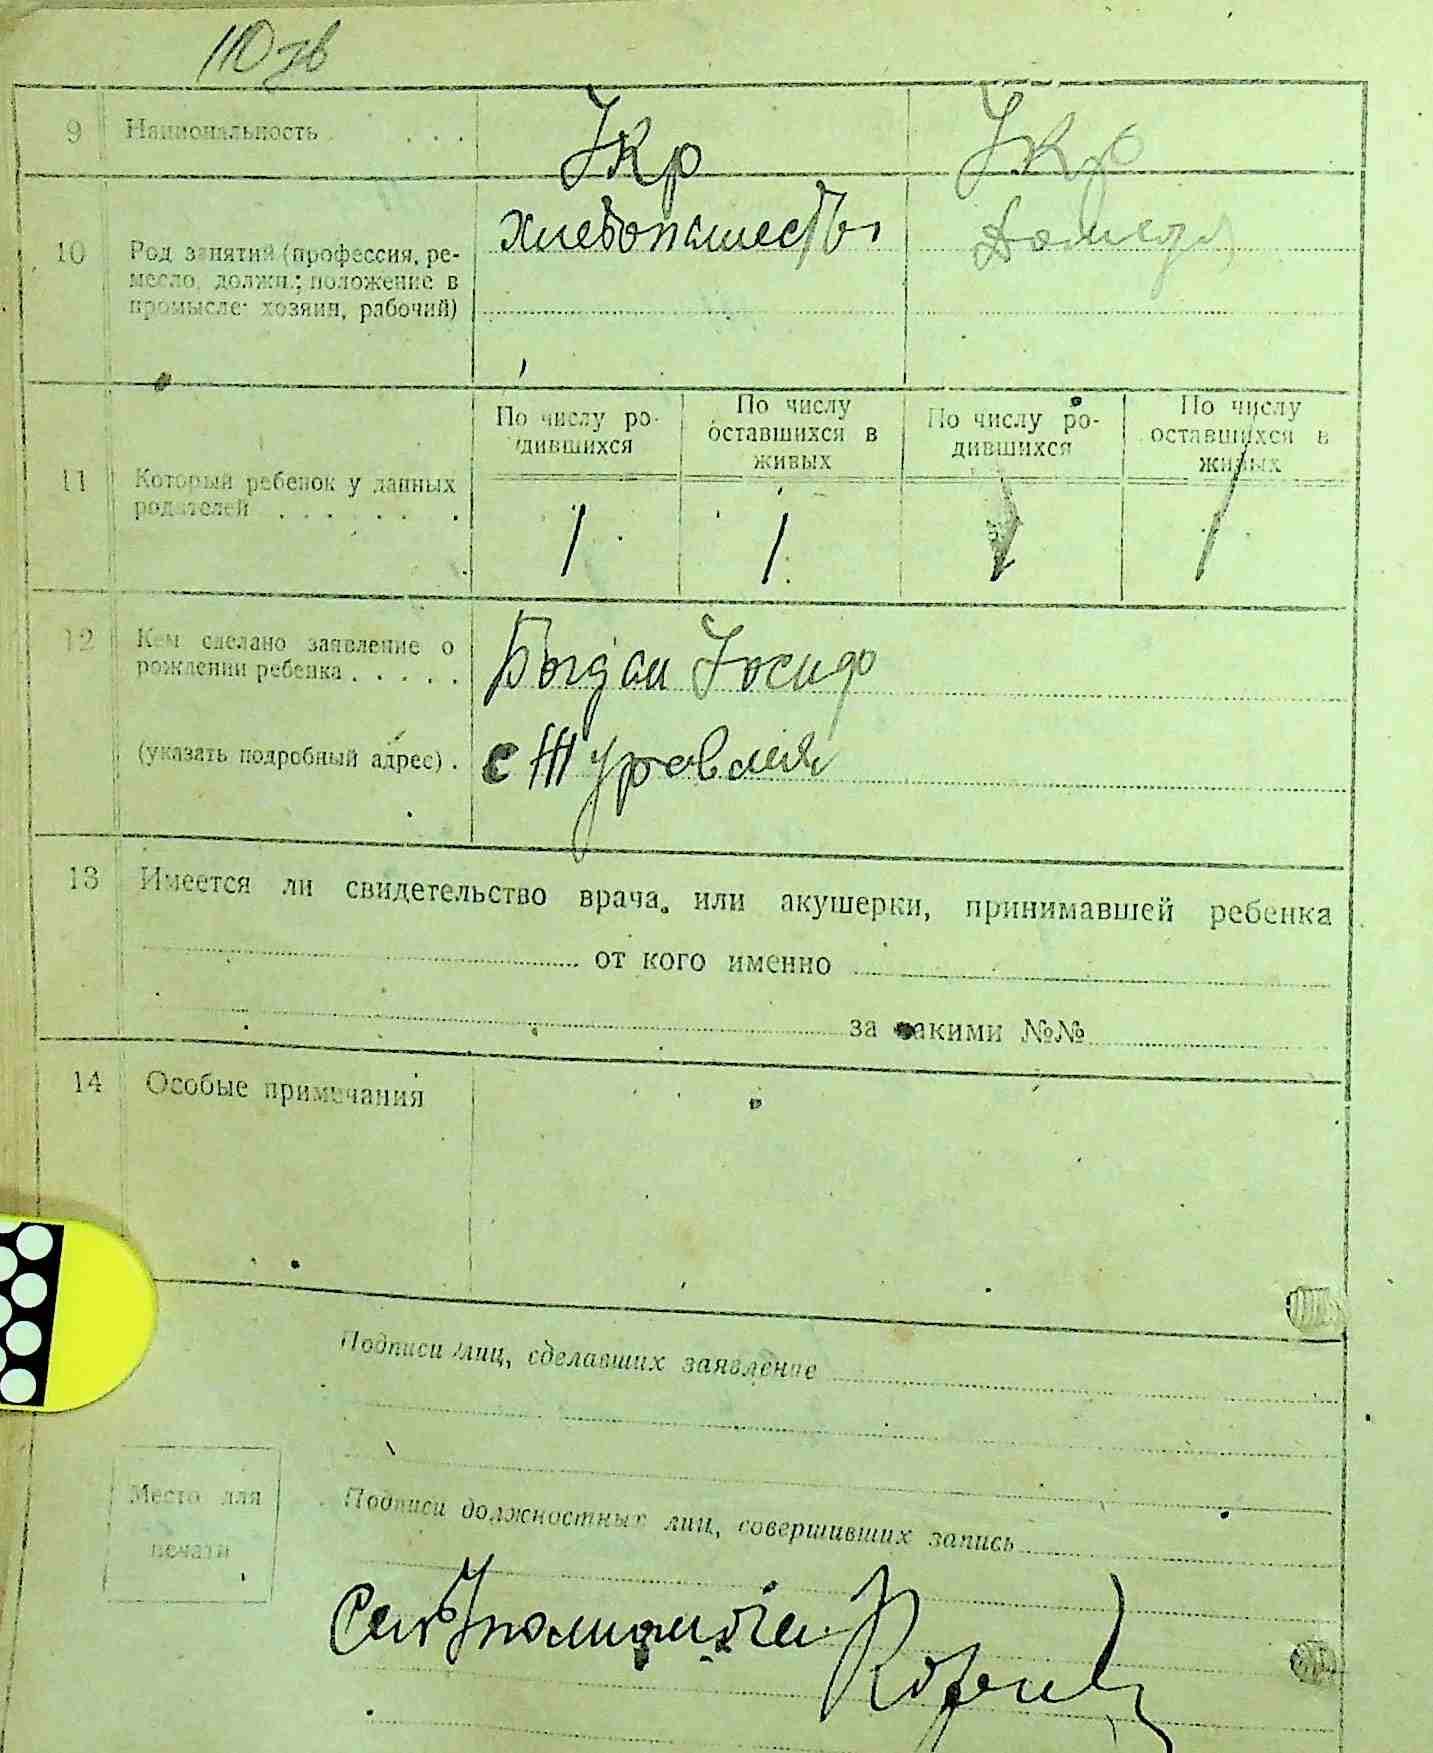 110 зв
9 Национальность . . . . Укр Укр
10 Род занятий (профессия, ре- хлебопашество Домохоз
месло, должн.; положение в
промысле: хозяин, рабочий)
По числу ро- По числу По числу ро- По числу
дившихся оставшихся в дившихся оставшихся в
живых живых
11 Который ребенок у данных
родителей . . . . . . . 1 1 1 1
12 Кем сделано заявление о
рождении ребенка . . . . . Богдан Иосиф
(указать подробный адрес) . с Журавлея
13 Имеется ли свидетельство врача или акушерки, принимавшей ребенка
от кого именно
за какими №№
14 Особые примечания
Подписи лиц, сделавших заявление
Место для
печати
Подписи должностных лиц, совершивших запись